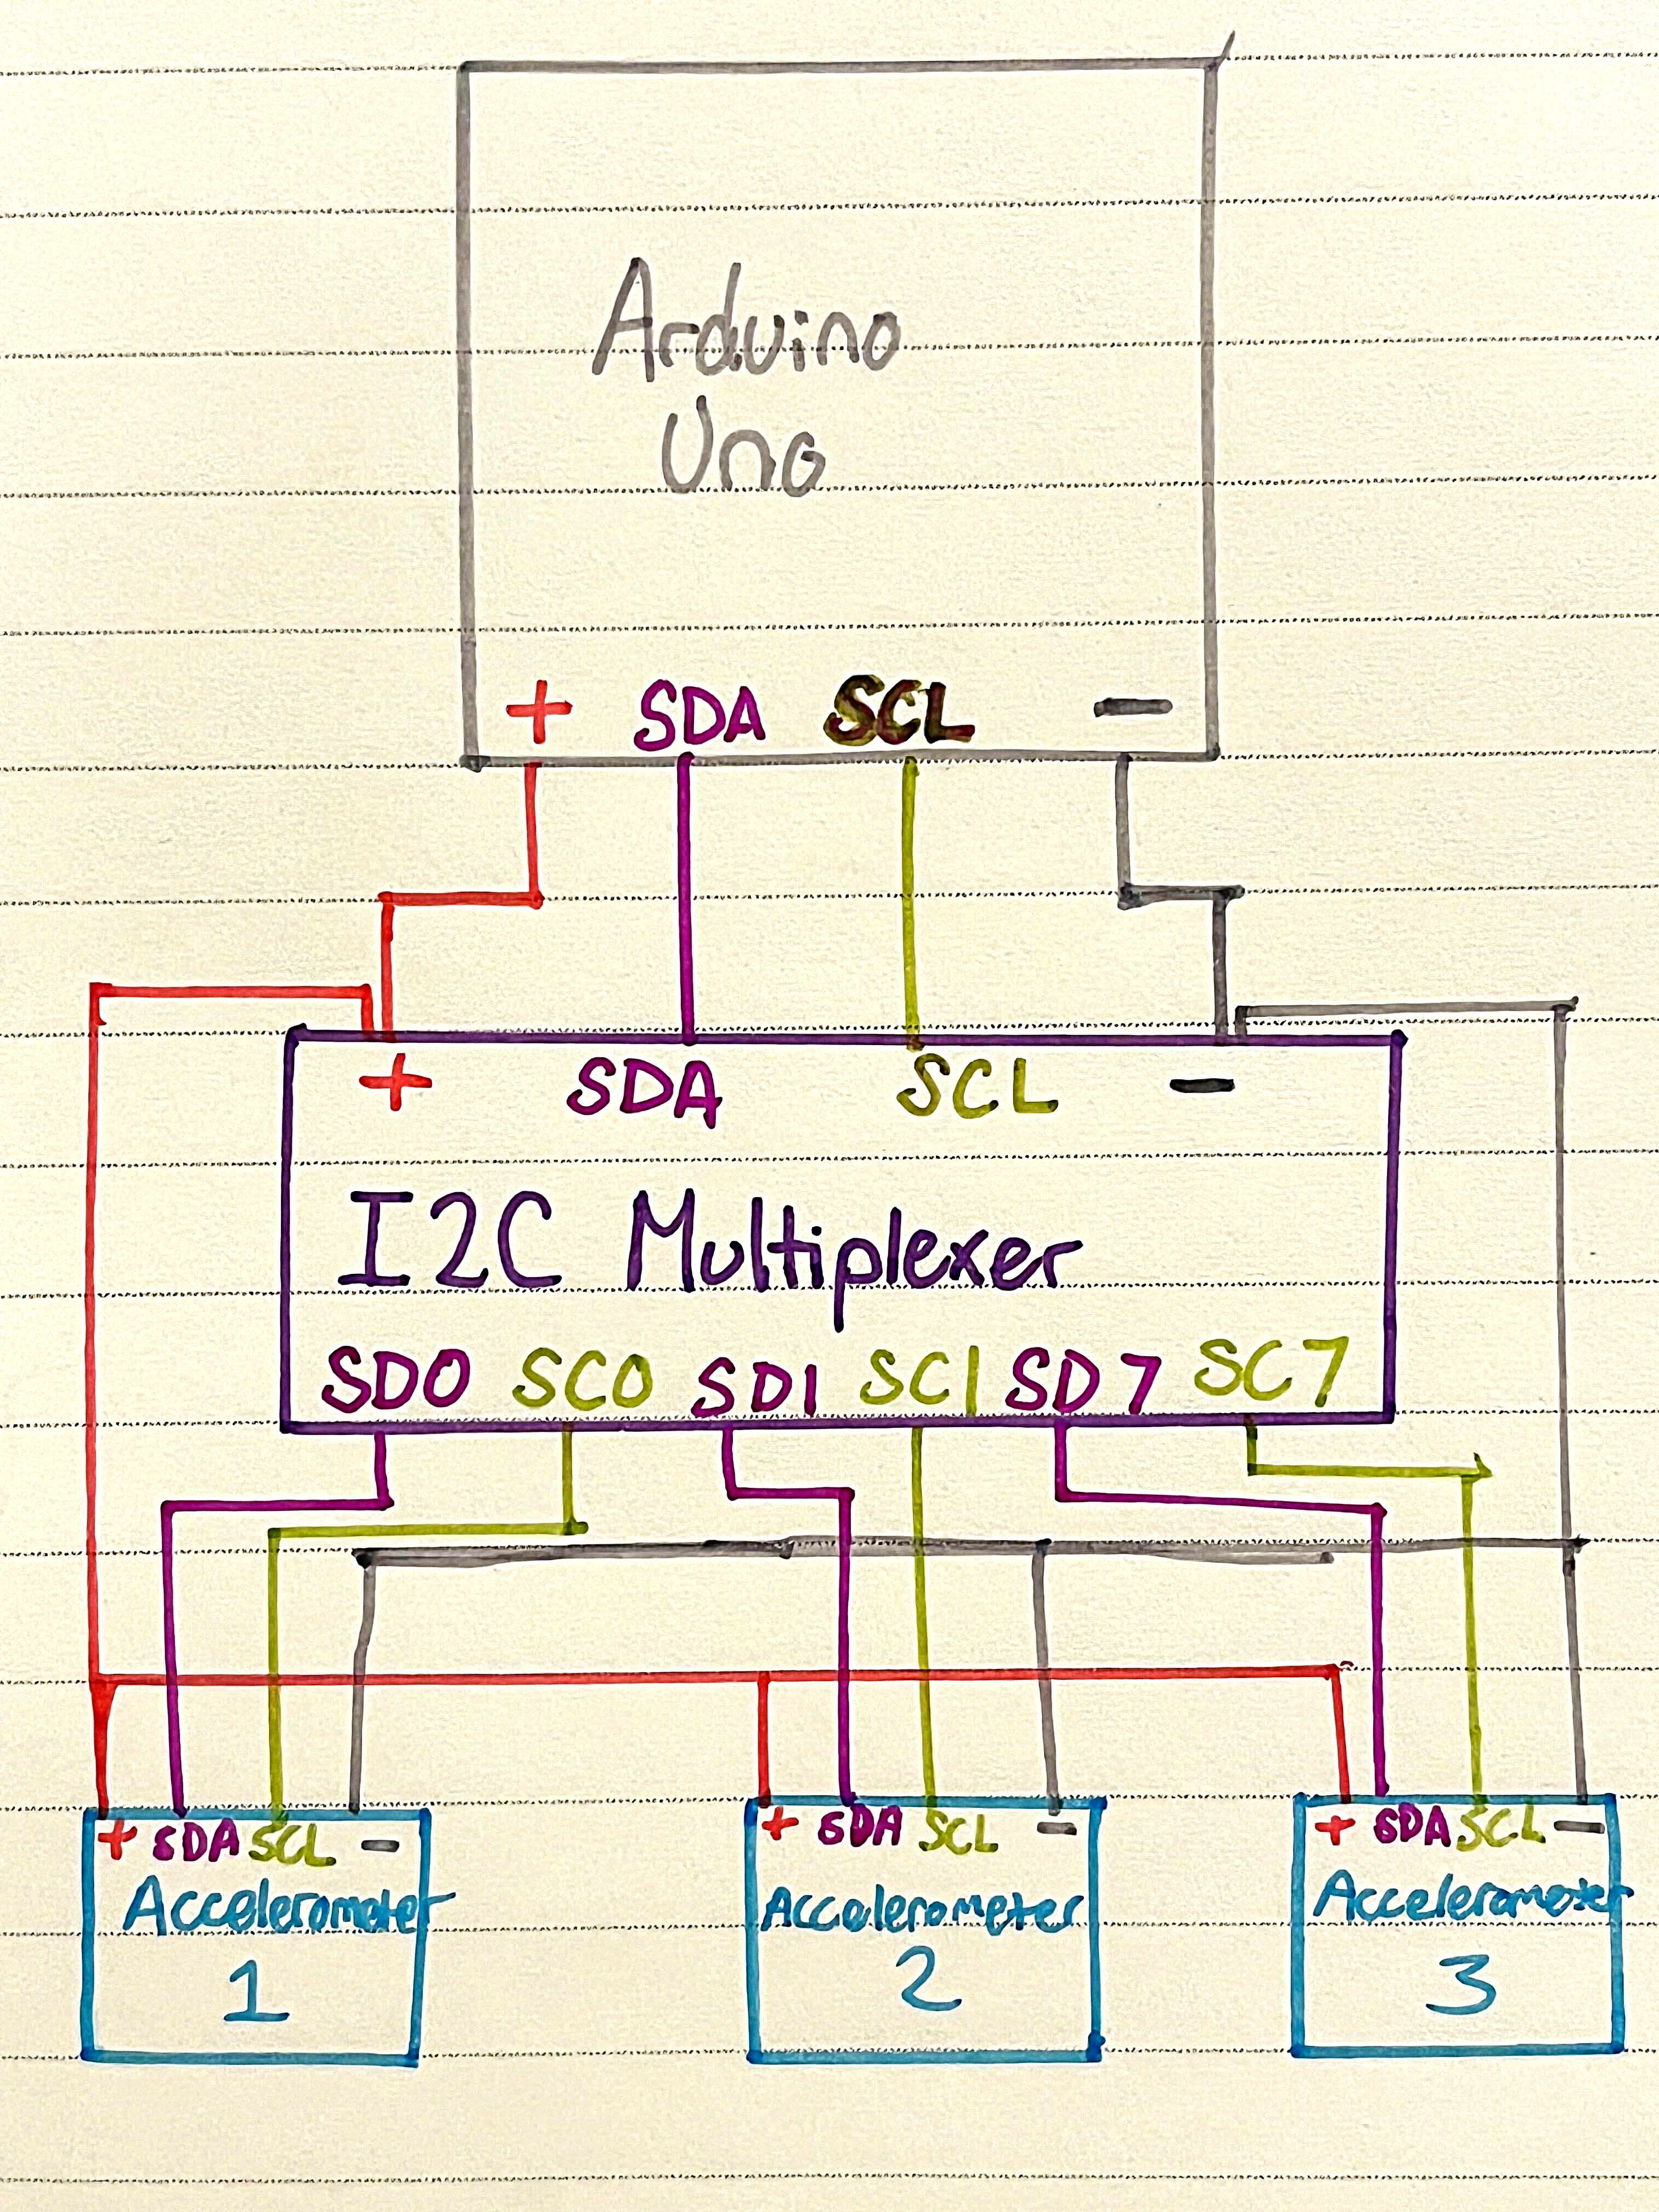 Arduino
Uno
+ SDA SCL −
+ SDA SCL −
I2C Multiplexer
SD0 SC0 SD1 SC1 SD7 SC7
+ SDA SCL −
Accelerometer
1
+ SDA SCL −
Accelerometer
2
+ SDA SCL −
Accelerometer
3